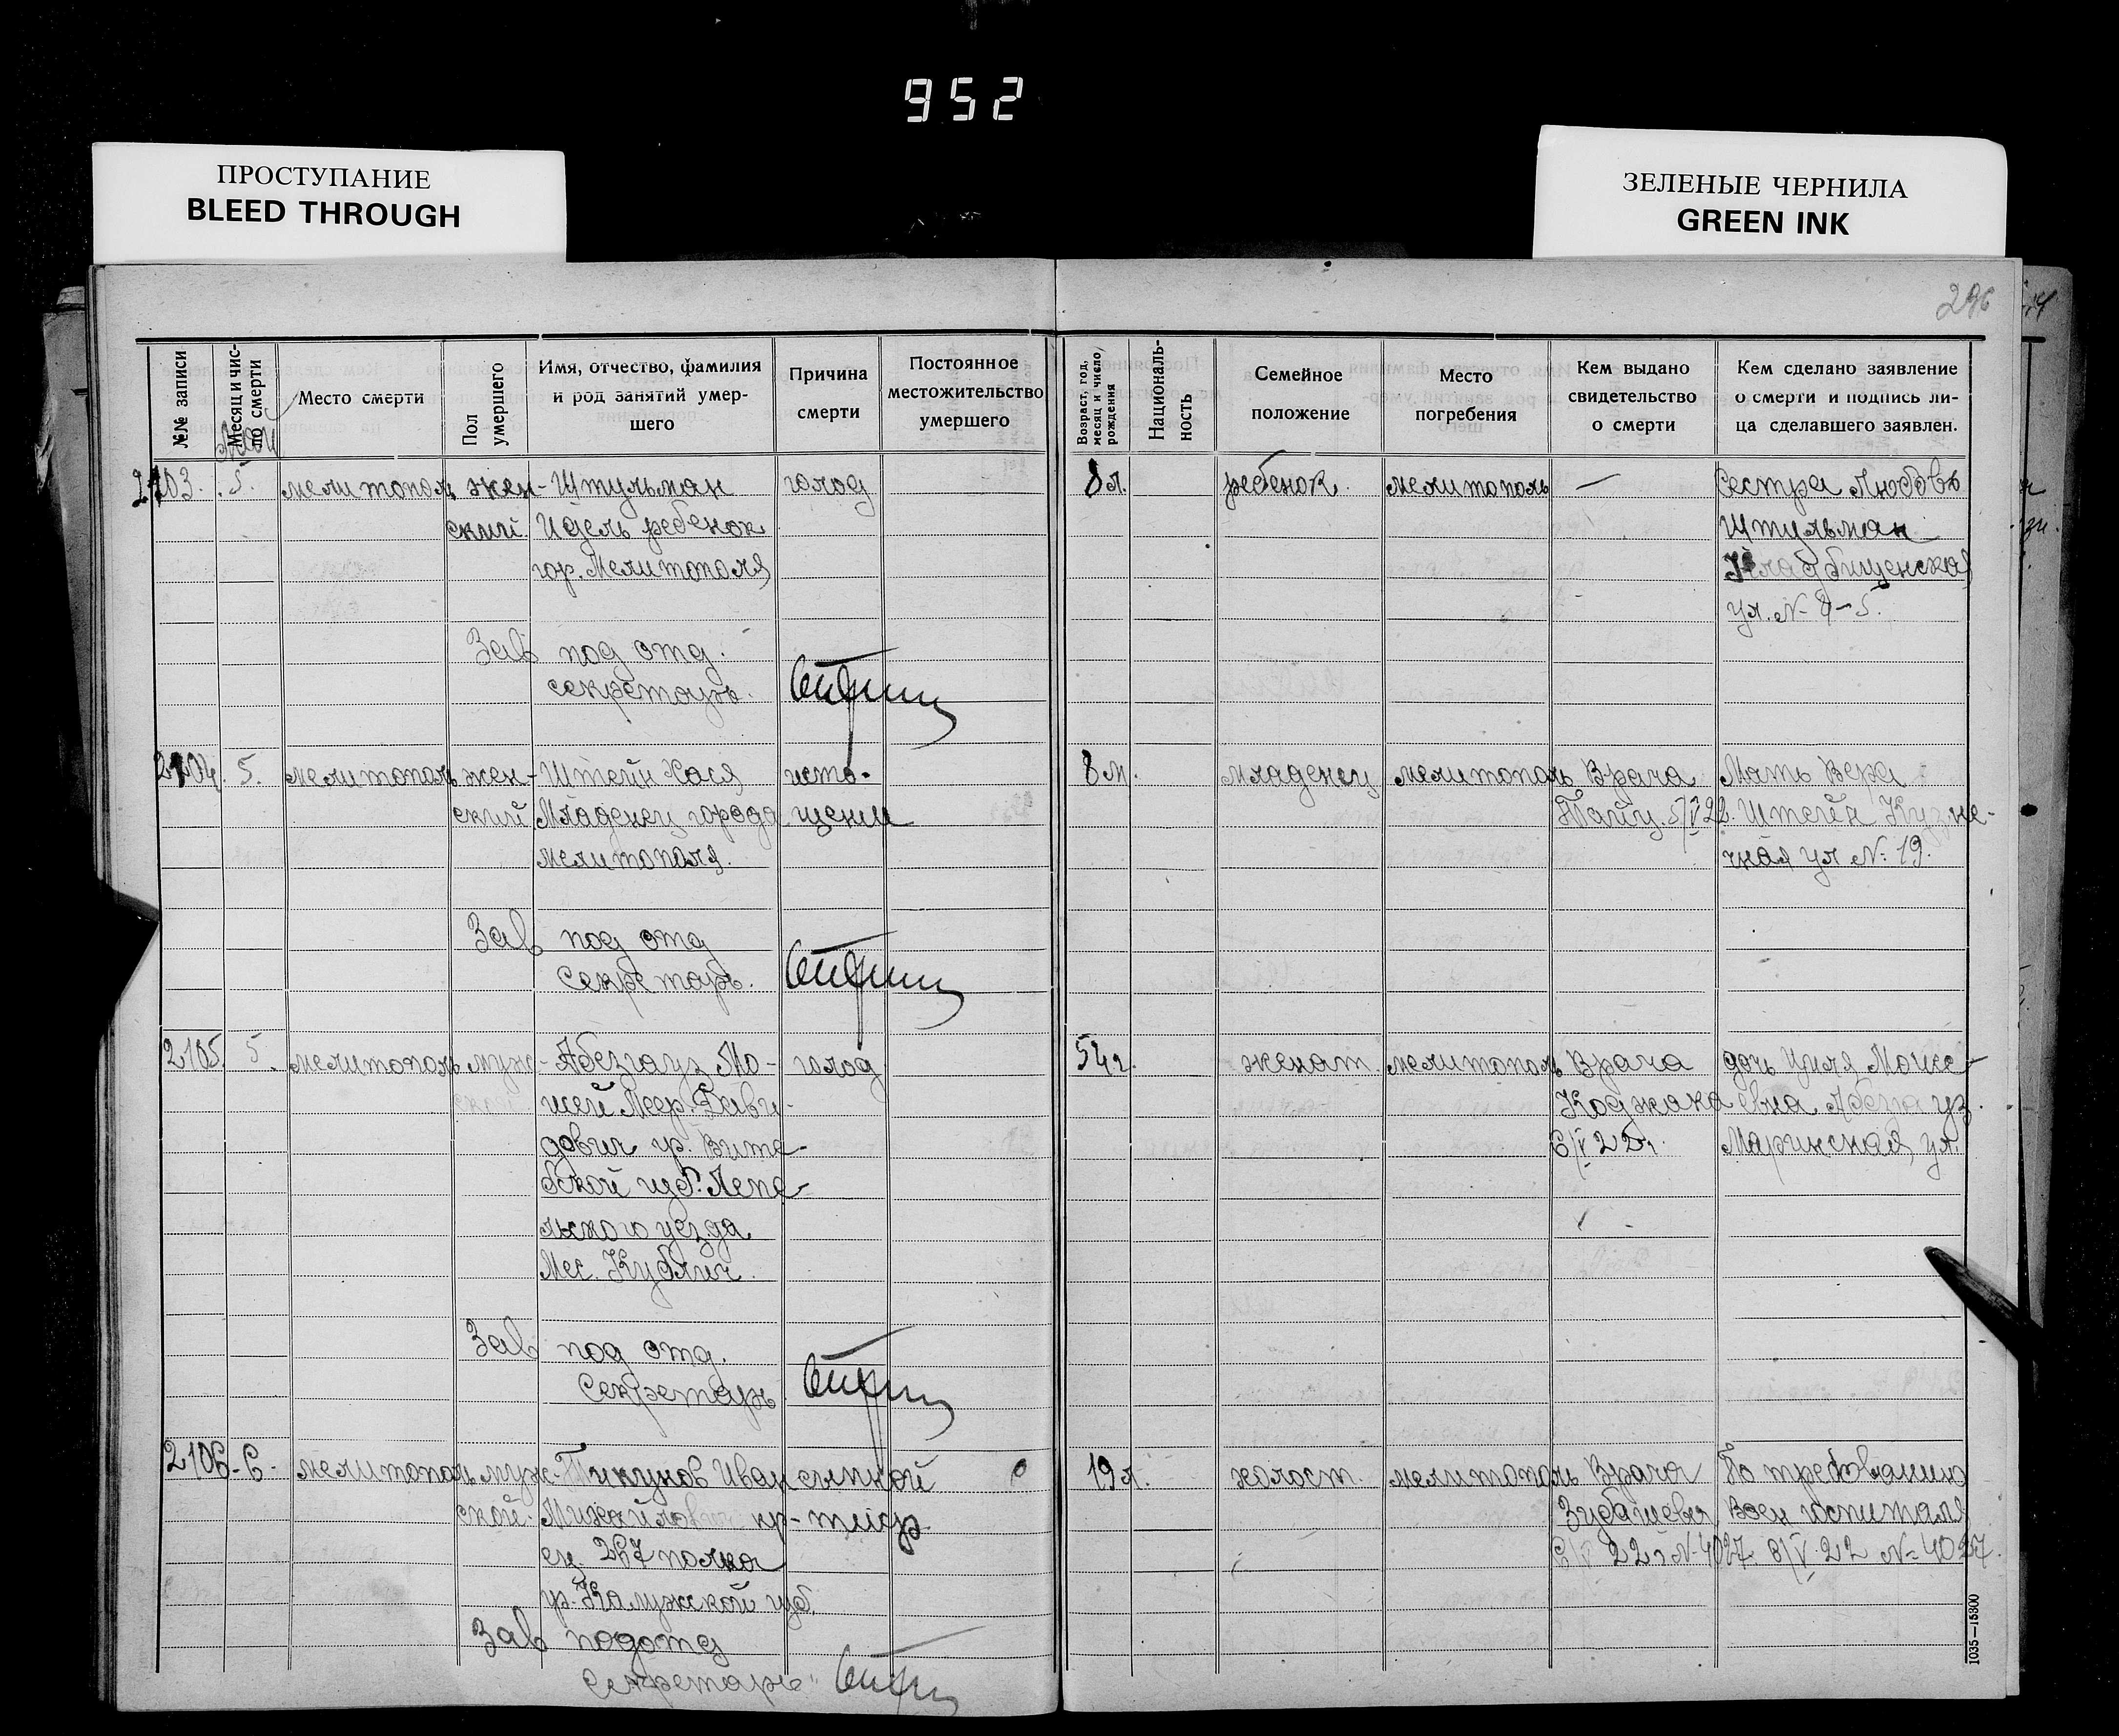 952
ПРОСТУПАНИЕ
BLEED THROUGH
ЗЕЛЕНЫЕ ЧЕРНИЛА
GREEN INK
296
№№ записи
Месяц и число смерти
Май
Место смерти
Пол умершего
Имя, отчество, фамилия
и род занятий умер-
шего
Причина
смерти
Постоянное
местожительство
умершего
Возраст, год,
месяц и число,
рождения
Националь-
ность
Семейное
положение
Место
погребения
Кем выдано
свидетельство
о смерти
Кем сделано заявление
о смерти и подпись ли-
ца сделавшего заявлен.
2103. 5. мелитополь жен- Штульман голод 8 л. ребенок. мелитополь — Сестра Любовь
ский. Идель ребенок Штульман
гор. Мелитополя Кладбищенская
ул. №
Зав под отд.
секретарь.
2104. 5. мелитополь жен- Штейн Хася исто- 8 м. младенец мелитополь Врача Мать Вера
ский. Младенец города щении Тайц. 5/V 22. Штейн Кузне-
мелитополя. чная ул № 19.
Зав под отд
Секретарь.
2105. 5. мелитополь муж- Абезгауз Мо- голод 54 г. женат. мелитополь Врача дочь Циля Моисе-
ской. исей Меер. Дави- Коджака евна Абезгауз.
дович гр. Вите- 6/V 22 г. Маринская ул.
бской губ. Лепе-
льского уезда
Мес. Кублич.
Зав под отд.
Секретарь
2106. 6. мелитополь муж- Тикунов Иван сыпной 19 л. холост. мелитополь Врача По требованию
ской. Михайлович кр- тиф Зубашева Воен госпиталя
ец 267 полка 6/V 22 г № 4027 8/V 22 № 4027.
гр. Калужской губ.
Зав подотд
Секретарь
1035—15300